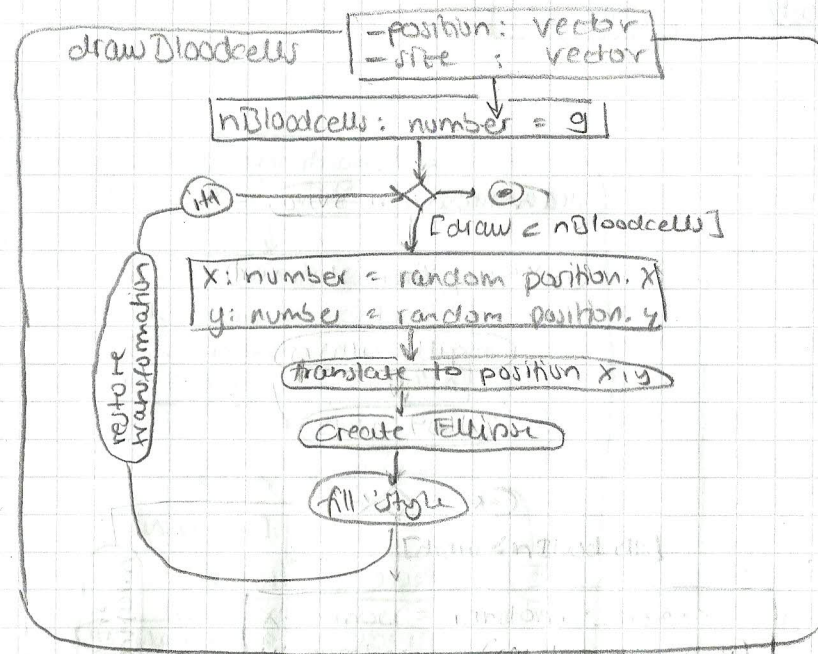 drawBloodcells
-position: vector
-size : vector
nBloodcells: number = 9
i++
[draw < nBloodcells]
x: number = random position.x
y: number = random position.y
translate to position x,y
create Ellipse
fill style
restore
transformation